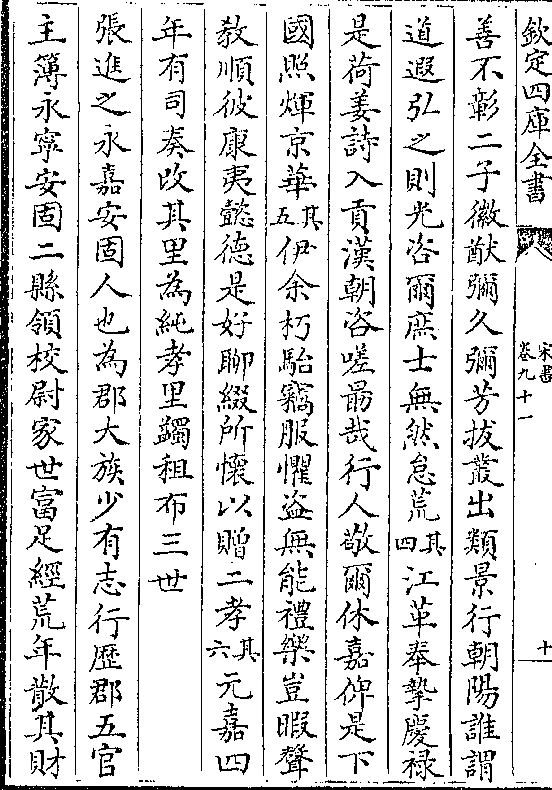 欽定四庫全書
宋書
卷九十一
十
善不彰二子徽猷彌久彌芳拔叢出類景行朝陽誰謂
道遐弘之則光咨爾庶士無然怠荒其四江革奉摯慶祿
是荷姜詩入貢漢朝咨嗟勗哉行人敬爾休嘉俾是下
國照煇京華其五伊余朽駘竊服懼盗無能禮樂豈暇聲
教順彼康夷懿德是好聊綴所懷以贈二孝其六元嘉四
年有司奏改其里為純孝里蠲租布三世
張進之永嘉安固人也為郡大族少有志行歴郡五官
主簿永寧安固二縣領校尉家世富足經荒年散其財